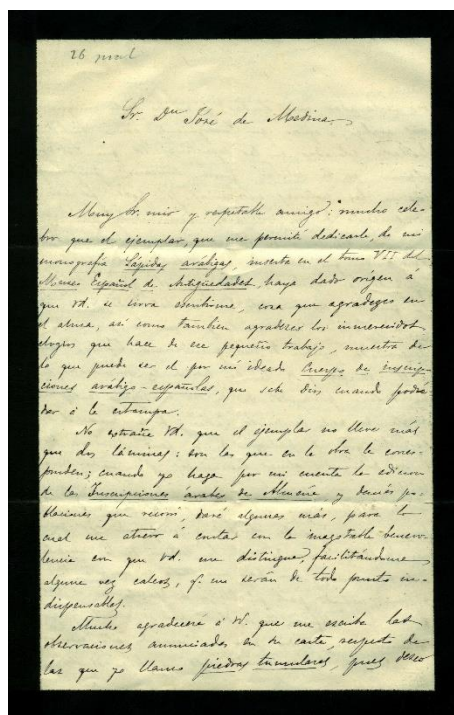 26
Sr. Dn José de Medina
Muy Sr. mio y respetable amigo: mucho cele-
bro que el ejemplar, que me permití dedicarle, de mi
monografía Lápidas arábigas, inserta en el tomo VII del
Museo Español de Antigüedades, haya dado origen á
que Vd. se sirva escribirme, cosa que agradezco en
el alma, asi como tambien agradezco los inmerecidos
elogios que hace de ese pequeño trabajo, muestra de
lo que puede ser el por mi ideado Cuerpo de inscrip-
ciones arábigo-españolas, que sabe Dios cuando podré
dar á la estampa.
No extrañe Vd. que el ejemplar no lleve más
que dos láminas: son las que en la obra le corres-
ponden; cuando yo haga por mi cuenta la edicion
de las Inscripciones árabes de Almería y demás po-
blaciones que recorrí, daré algunas más, para lo
cual me atrevo á contar con la inagotable benevo-
lencia con que Vd. me distingue, facilitándome
alguna vez calcos, q. me serán de todo punto in-
dispensables.
Mucho agradeceré á V. que me escriba las
observaciones anunciadas en su carta, respecto de
las que yo llamo piedras tumulares, pues deseo